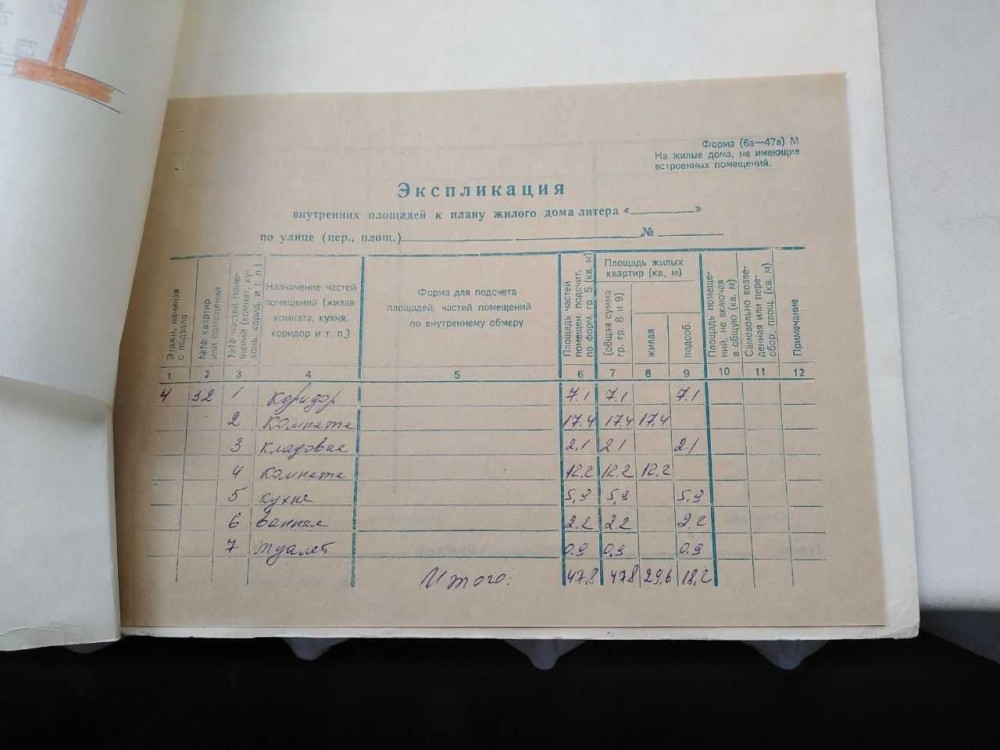 Форма (6а—47а) М
На жилые дома, не имеющие
встроенных помещений.
Экспликация
внутренних площадей к плану жилого дома литера «________»
по улице (пер., площ.)____________________ № ________
Этажи, начиная с подвала
№№ квартир или помещений
№№ частей помещений (комнат, кухонь, корид. и т. п.)
Назначение частей помещений (жилая комната, кухня, коридор и т. п.)
Форма для подсчета площадей, частей помещений по внутреннему обмеру
Площадь частей помещен. подсчит. по форм. гр. 5 (кв. м)
Площадь жилых квартир (кв, м)
(общая сумма гр. гр. 8 и 9)
жилая
подсоб.
Площадь помещений, не включая в общую (кв. м)
Самовольно возведенная или переобор. площ. (кв. м)
Примечание
1 2 3 4 5 6 7 8 9 10 11 12
4 32 1 Коридор 7.1 7.1 7.1
2 Комната 17.4 17.4 17.4
3 кладовая 2.1 2.1 2.1
4 Комната 12.2 12.2 12.2
5 кухня 5,9 5,9 5,9
6 ванная 2.2 2.2 2.2
7 туалет 0.9 0.9 0.9
Итого: 47.8 47.8 29,6 18,2